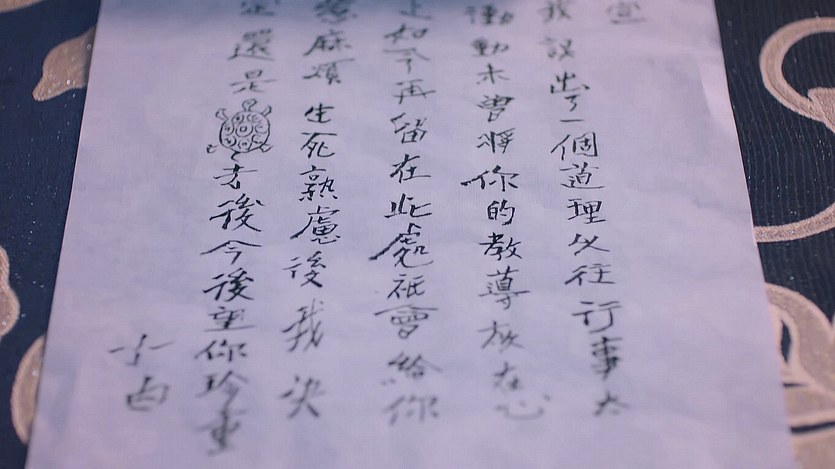 宣
我誤出了一個道理以往行事太
衝動未曾將你的教導放在心
上如今再留在此處祇會給你
惹麻煩生死熟慮後我決
定還是才後今後望你珍重
小白